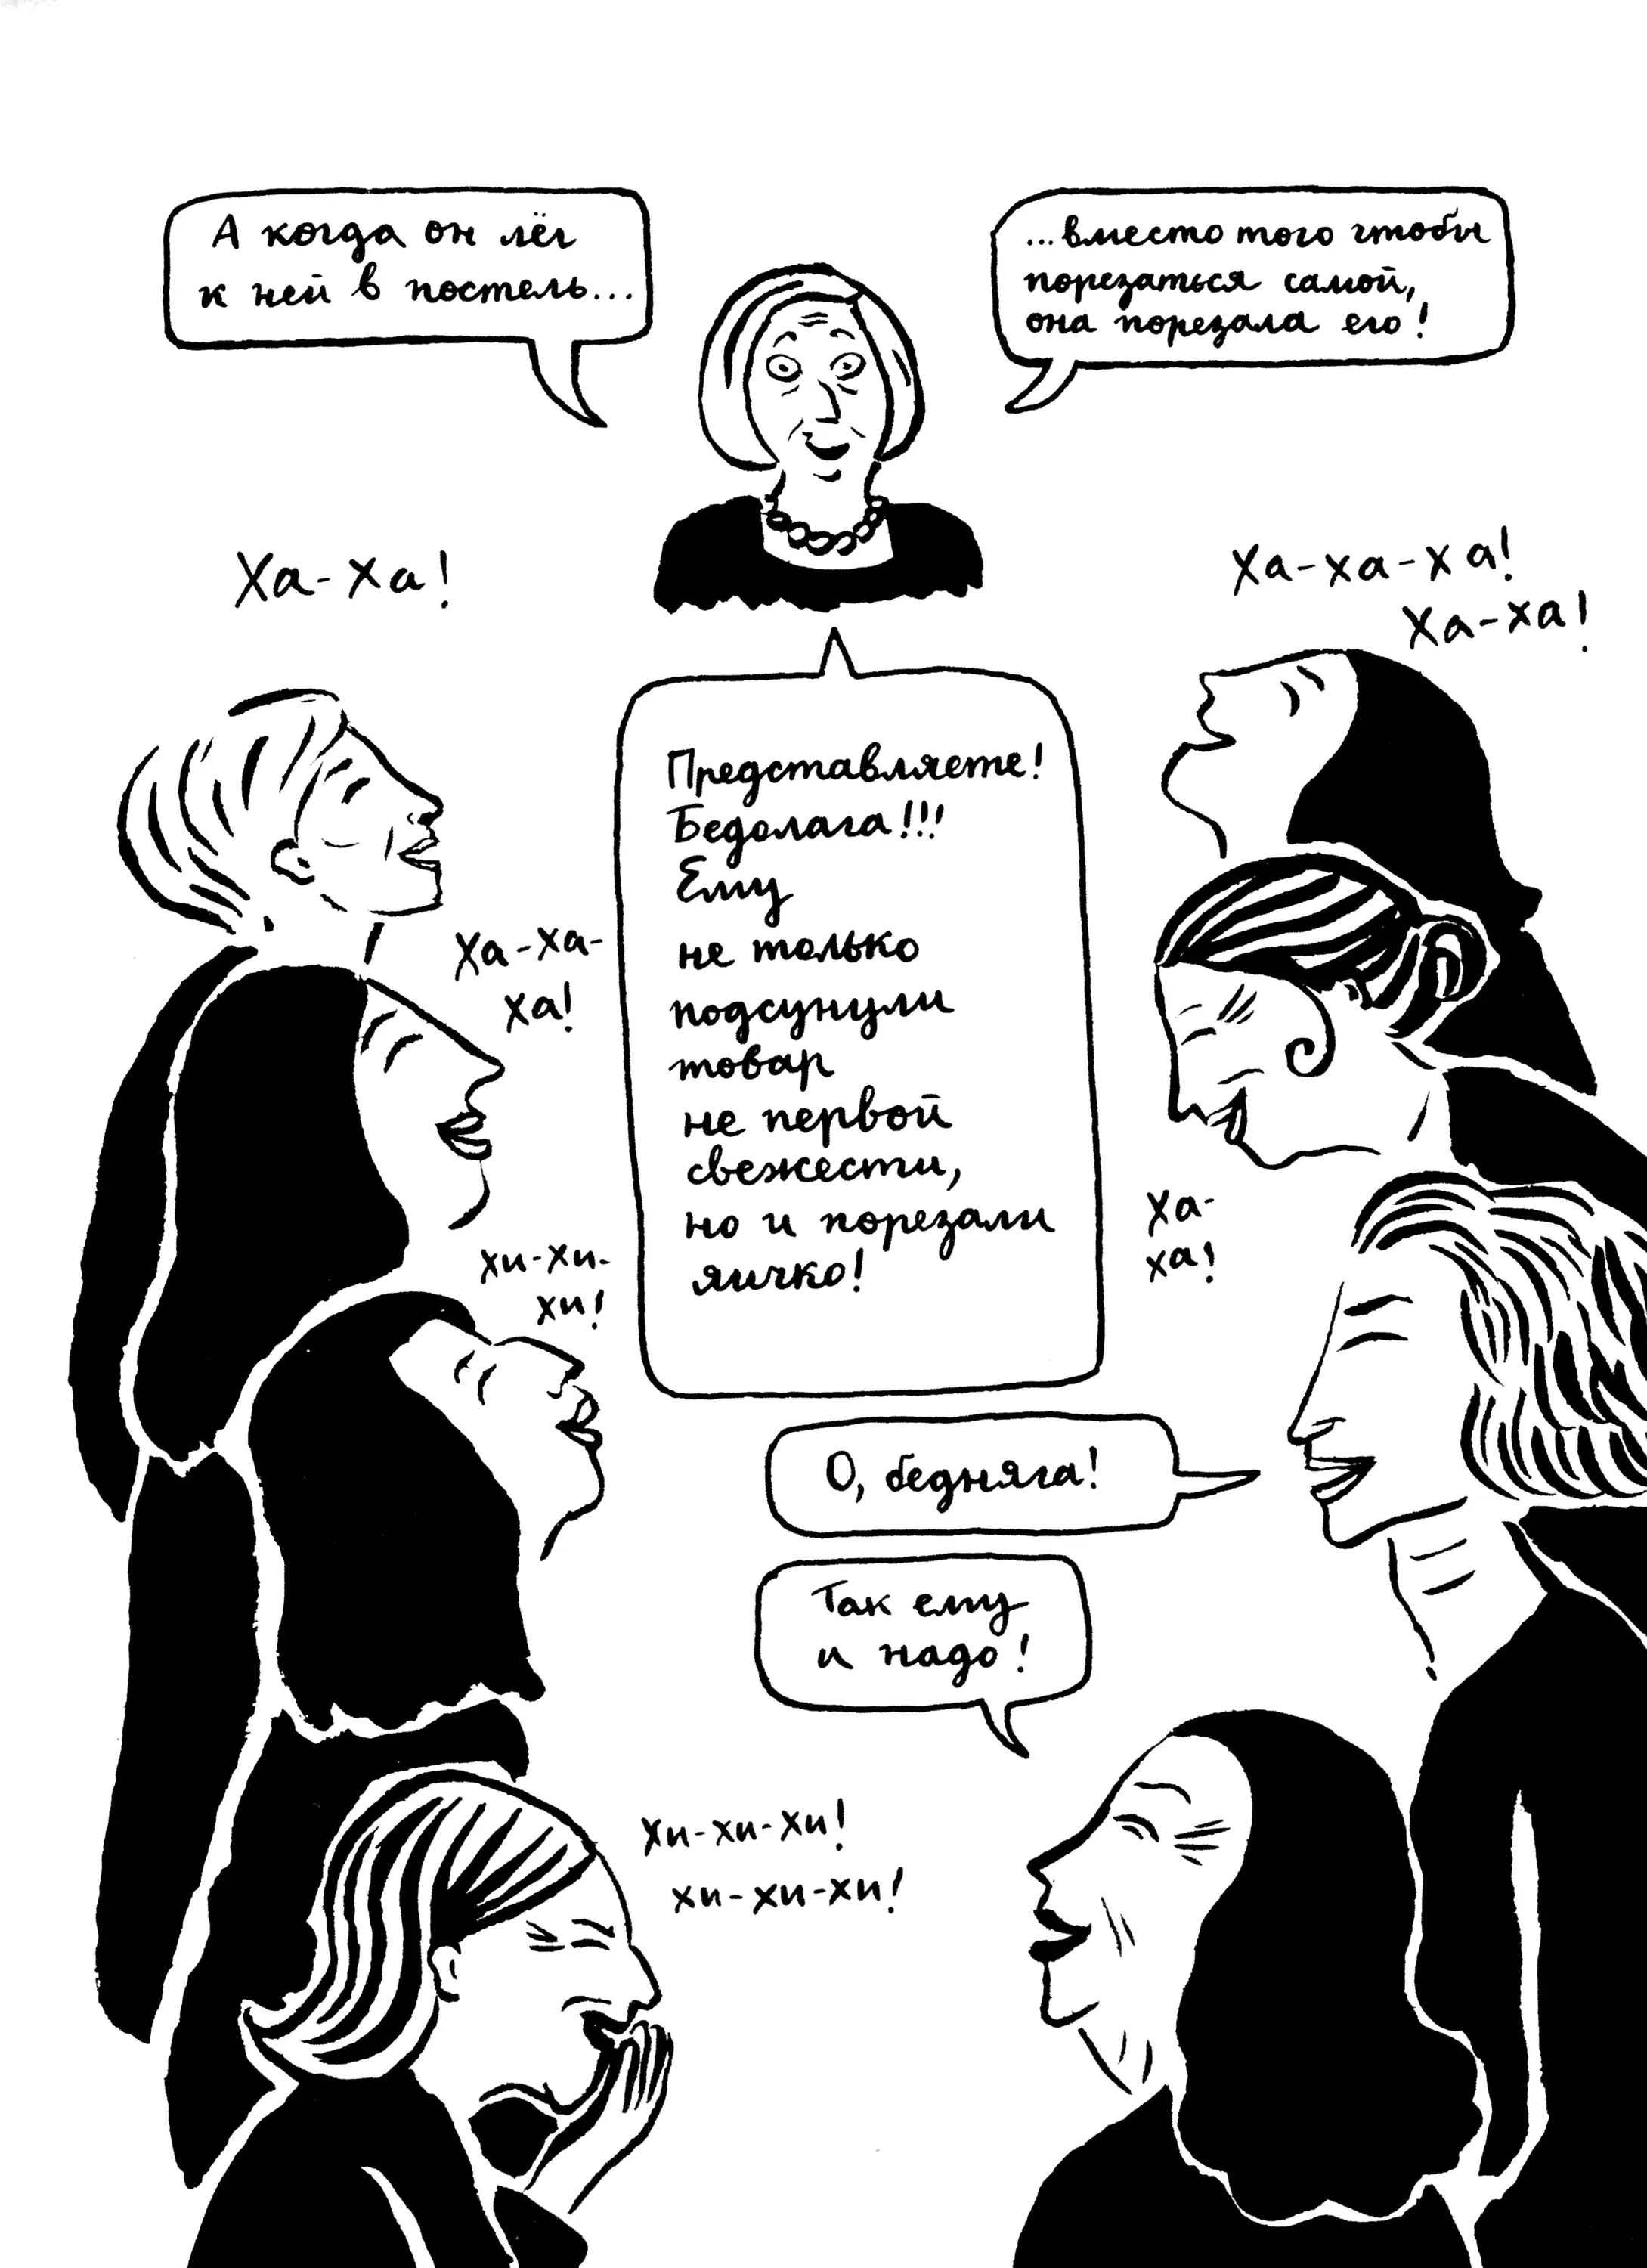 А когда он лёг
к ней в постель...
...вместо того чтобы
порезаться самой,
она порезала его!
Ха-ха!
Ха-ха-ха!
Ха-ха!
Представляете!
Бедолага!!!
Ему
не только
подсунули
товар
не первой
свежести,
но и порезали
яичко!
Ха-ха-
ха!
хи-хи-
хи!
Ха-
ха!
О, бедняга!
Так ему
и надо!
Хи-хи-хи!
хи-хи-хи!